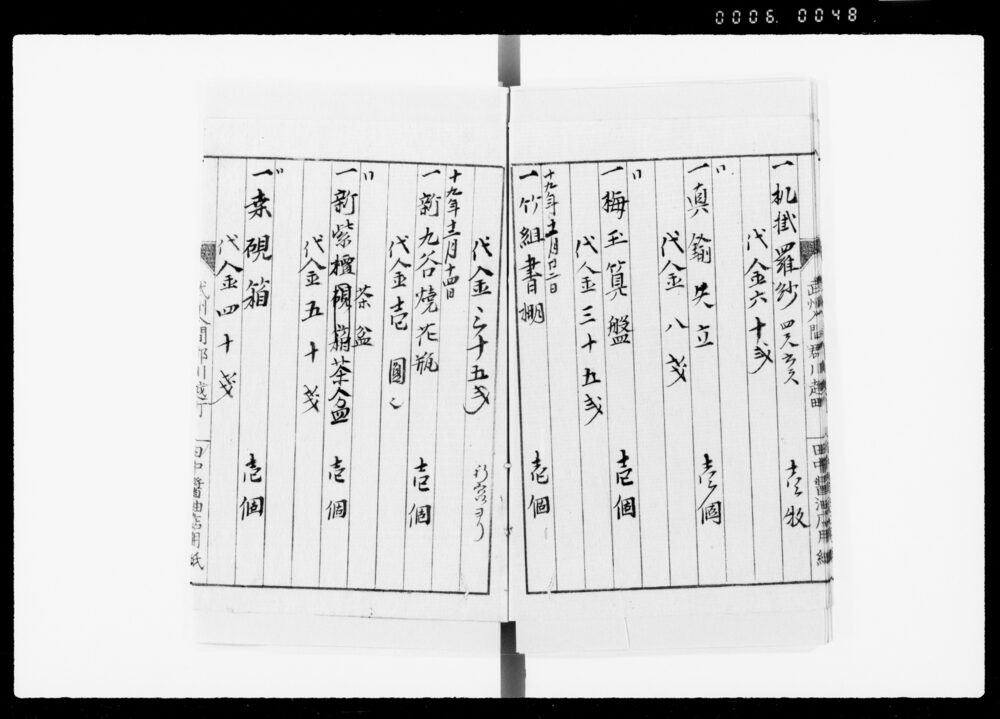 0006. 0048
一机掛羅紗 壱枚
代金六十銭
〃
一真鍮矢立 壱個
代金八銭
〃
一梅玉算盤 壱個
代金三十五銭
十九年十二月廿二日
一竹組書棚 壱個
代金三十五銭
十九年十二月十四日
一新九谷焼花瓶 壱個
代金壱圓
〃
一新紫檀硯箱茶盆 壱個
茶盆
代金五十銭
〃
一桑硯箱 壱個
代金四十銭
武州入間郡川越町
田中醤油店用紙